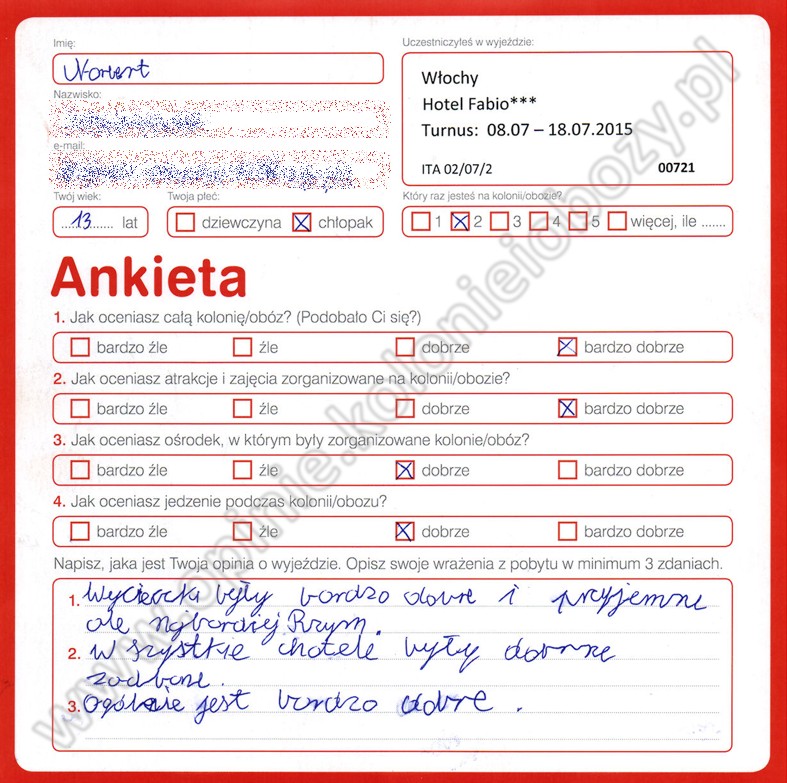 Imię:
Norbert
Uczestniczyłeś w wyjeździe:
Włochy
Hotel Fabio***
Turnus: 08.07 – 18.07.2015
ITA 02/07/2 00721
Nazwisko:
e-mail:
Twój wiek:
13 lat
Twoja płeć:
dziewczyna chłopak
Który raz jesteś na kolonii/obozie?
1 2 3 4 5 więcej, ile .......
Ankieta
1. Jak oceniasz całą kolonię/obóz? (Podobało Ci się?)
bardzo źle źle dobrze bardzo dobrze
2. Jak oceniasz atrakcje i zajęcia zorganizowane na kolonii/obozie?
bardzo źle źle dobrze bardzo dobrze
3. Jak oceniasz ośrodek, w którym były zorganizowane kolonie/obóz?
bardzo źle źle dobrze bardzo dobrze
4. Jak oceniasz jedzenie podczas kolonii/obozu?
bardzo źle źle dobrze bardzo dobrze
Napisz, jaka jest Twoja opinia o wyjeździe. Opisz swoje wrażenia z pobytu w minimum 3 zdaniach.
1. Wycieczki były bardzo dobre i przyjemne
ale najbardziej Rzym.
2. Wszystkie chotele były dobrze
zadbane.
3. Ogólnie jest bardzo dobre.
www.opinie.kolonieiobozy.pl